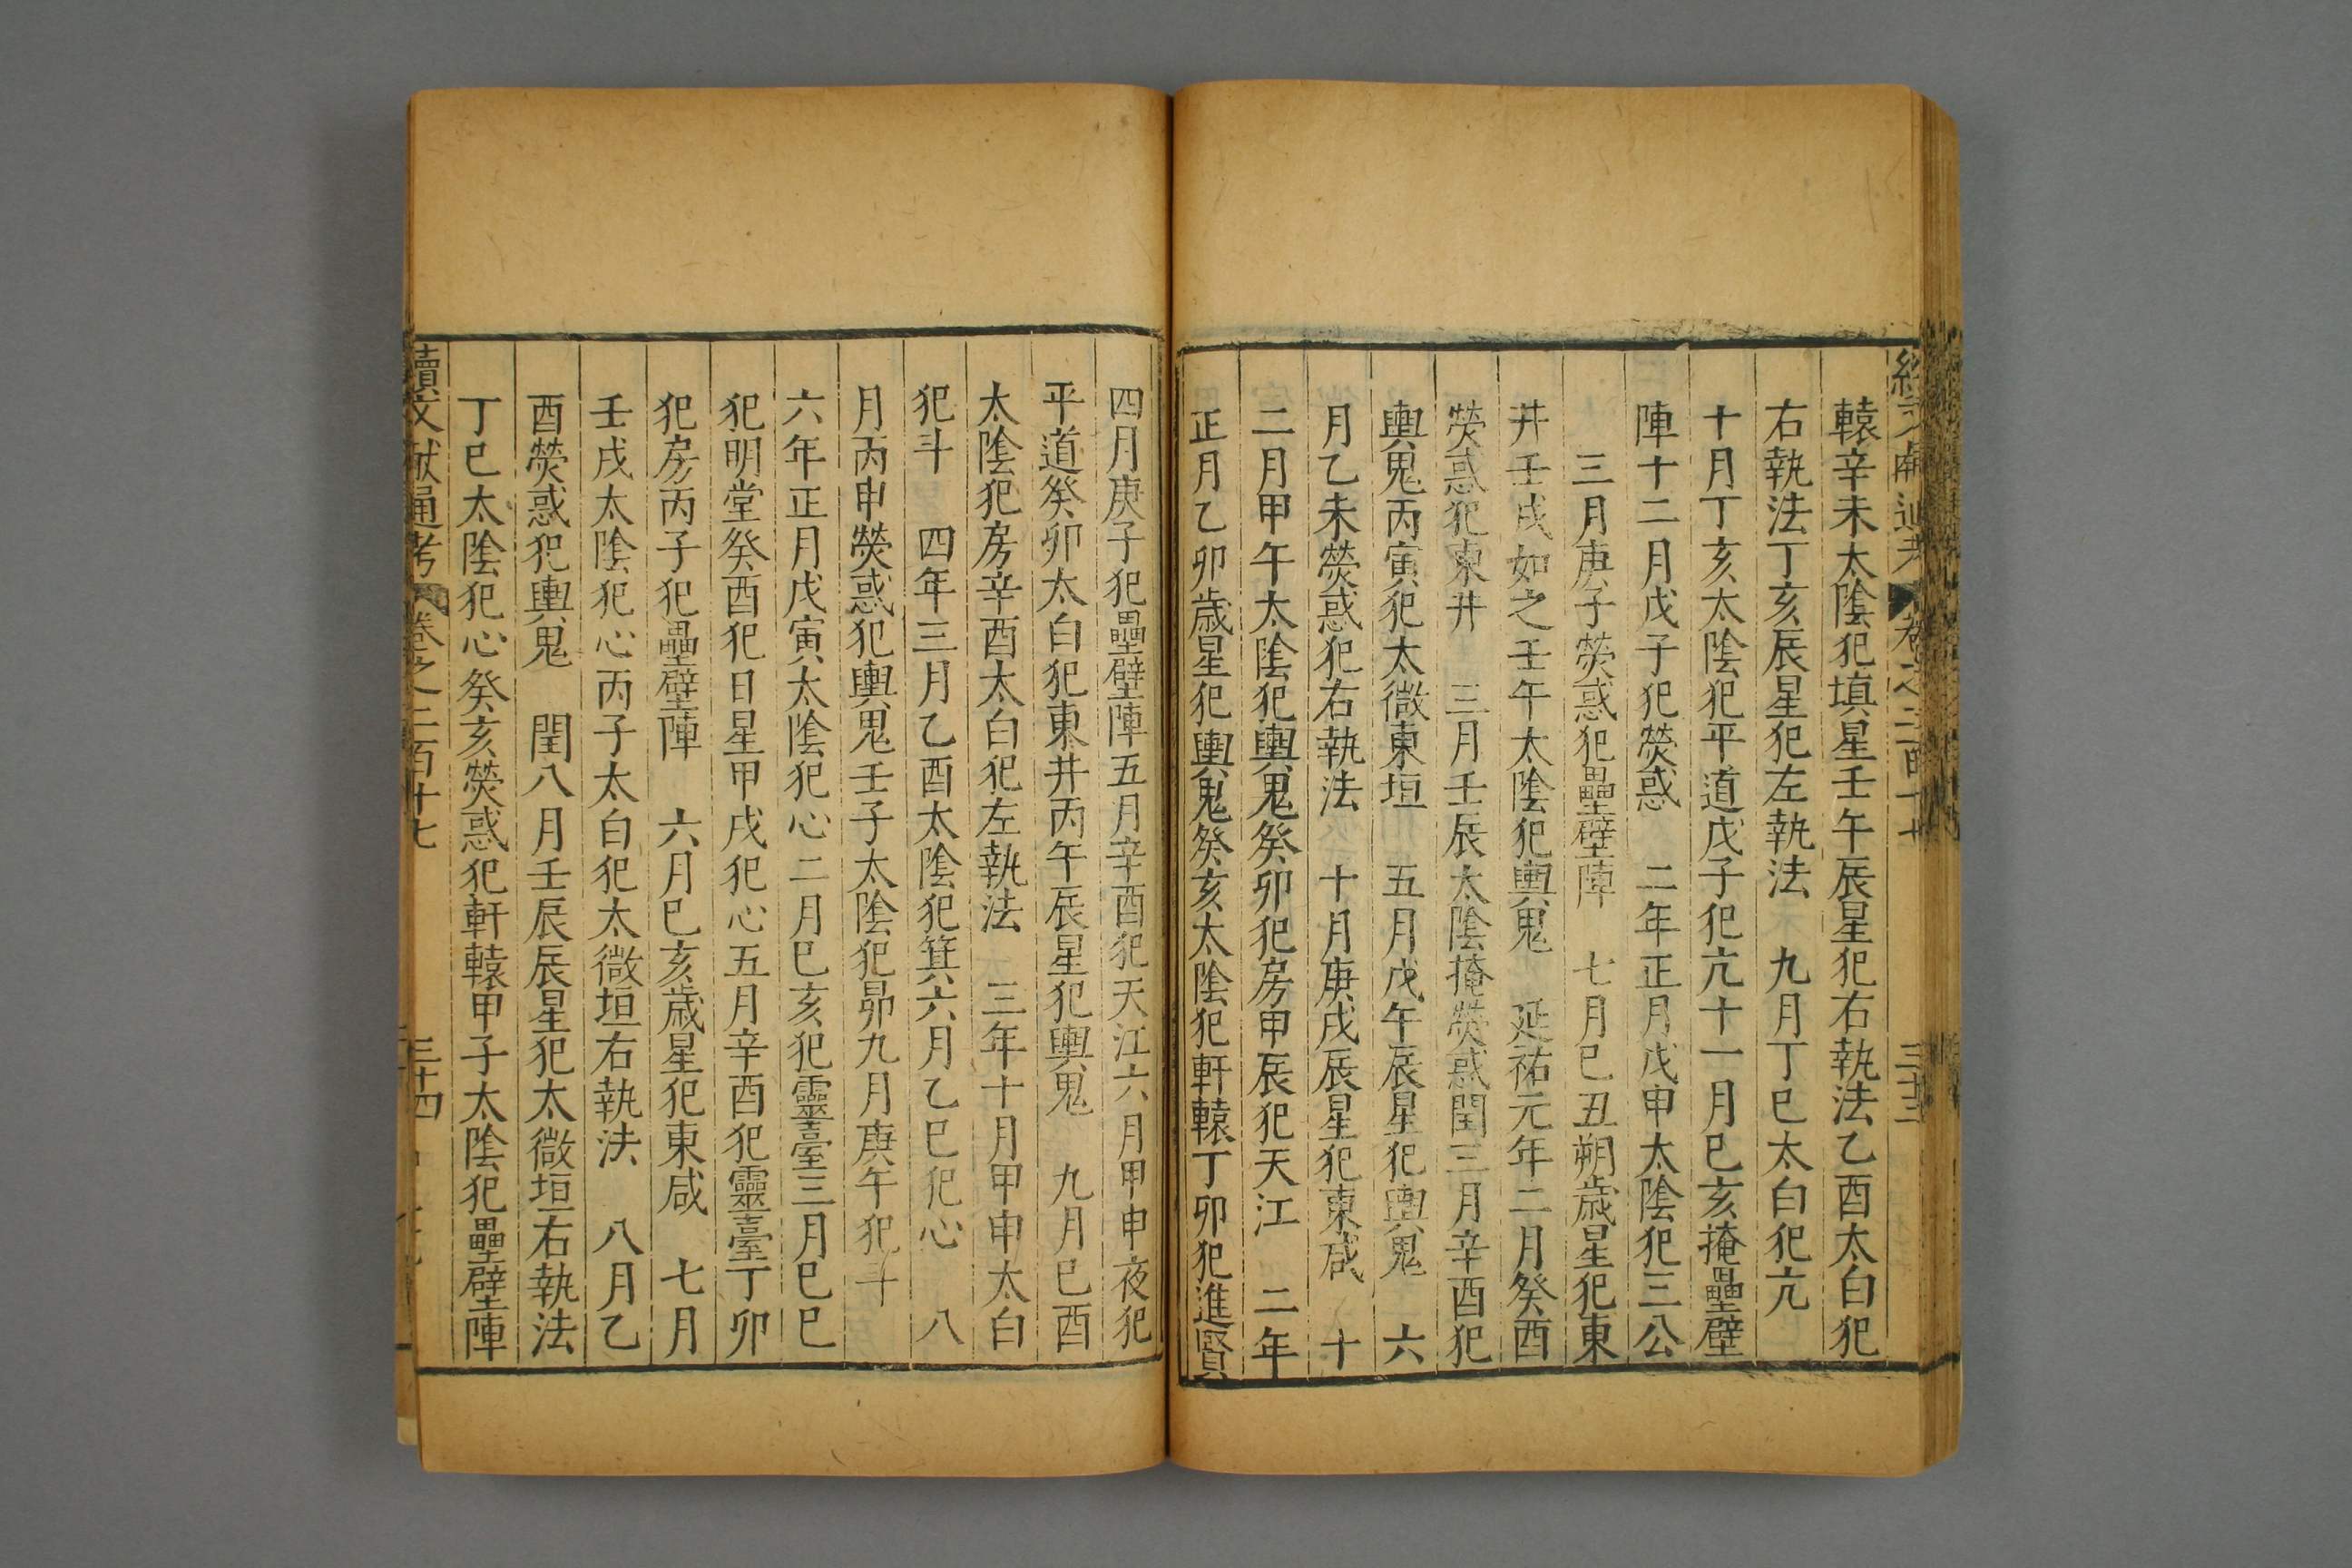 轅辛未太陰犯填星壬午辰星犯右執法乙酉太白犯
右執法丁亥辰星犯左執法　九月丁巳太白犯亢
十月丁亥太陰犯平道戊子犯亢十一月巳亥掩壘壁
陣十二月戊子犯熒惑　二年正月戊申太陰犯三公
三月庚子熒惑犯壘壁陣　七月巳丑朔歲星犯東
井壬戌如之壬午太陰犯輿鬼　延祐元年二月癸酉
熒惑犯東井　三月壬辰太陰掩熒惑閏三月辛酉犯
輿鬼丙寅犯太微東垣　五月戊午辰星犯輿鬼　六
月乙未熒惑犯右執法　十月庚戌辰星犯東咸　十
二月甲午太陰犯輿鬼癸卯犯房甲辰犯天江　二年
正月乙卯歲星犯輿鬼癸亥太陰犯軒轅丁卯犯進賢
四月庚子犯壘壁陣五月辛酉犯天江六月甲申夜犯
平道癸卯太白犯東井丙午辰星犯輿鬼　九月巳酉
太陰犯房辛酉太白犯左執法　三年十月甲申太白
犯斗　四年三月乙酉太陰犯箕六月乙巳犯心　八
月丙申熒惑犯輿鬼壬子太陰犯昴九月庚午犯斗
六年正月戊寅太陰犯心二月巳亥犯靈臺三月巳巳
犯明堂癸酉犯日星甲戌犯心五月辛酉犯靈臺丁卯
犯房丙子犯壘壁陣　六月巳亥歲星犯東咸　七月
壬戌太陰犯心丙子太白犯太微垣右執法　八月乙
酉熒惑犯輿鬼　閏八月壬辰辰星犯太微垣右執法
丁巳太陰犯心癸亥熒惑犯軒轅甲子太陰犯壘壁陣
續文献通考　卷之二百十七　三十四